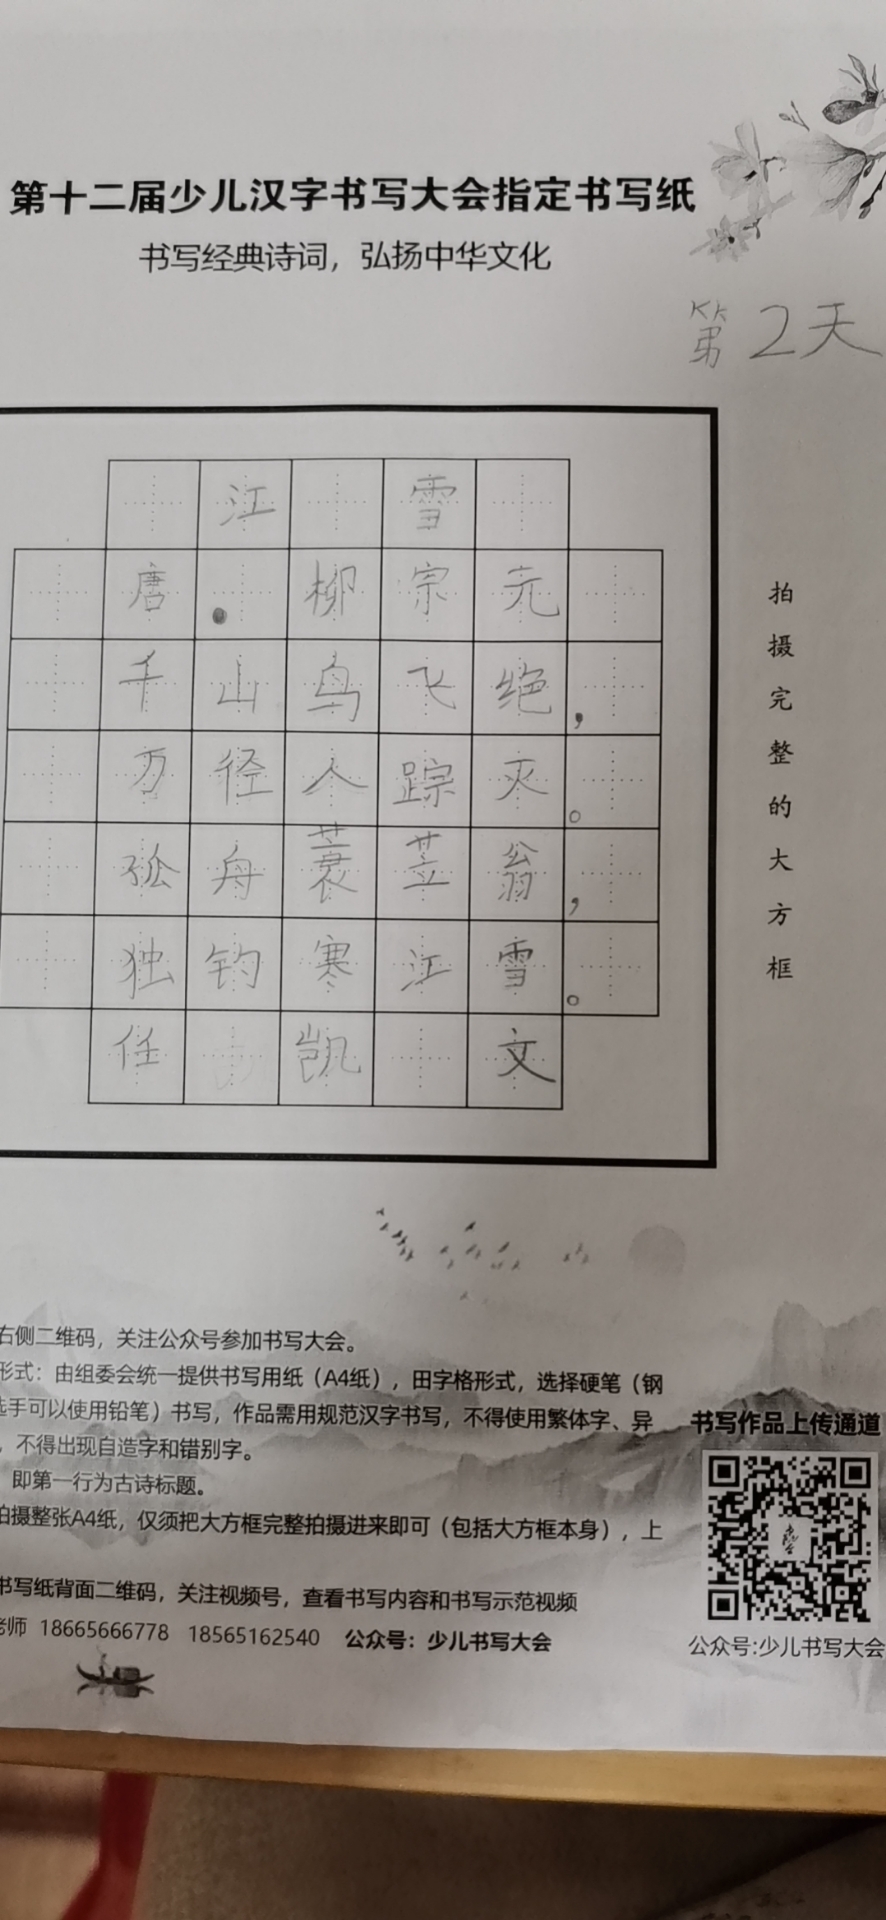 第十二届少儿汉字书写大会指定书写纸
书写经典诗词，弘扬中华文化
第2天
江雪
唐·柳宗元
千山鸟飞绝，
万径人踪灭。
孤舟蓑笠翁，
独钓寒江雪。
任凯文
拍摄完整的大方框
右侧二维码，关注公众号参加书写大会。
形式：由组委会统一提供书写用纸（A4纸），田字格形式，选择硬笔（钢
选手可以使用铅笔）书写，作品需用规范汉字书写，不得使用繁体字、异
，不得出现自造字和错别字。
即第一行为古诗标题。
拍摄整张A4纸，仅须把大方框完整拍摄进来即可（包括大方框本身），上
书写纸背面二维码，关注视频号，查看书写内容和书写示范视频
老师 18665666778 18565162540 公众号：少儿书写大会
书写作品上传通道
公众号:少儿书写大会